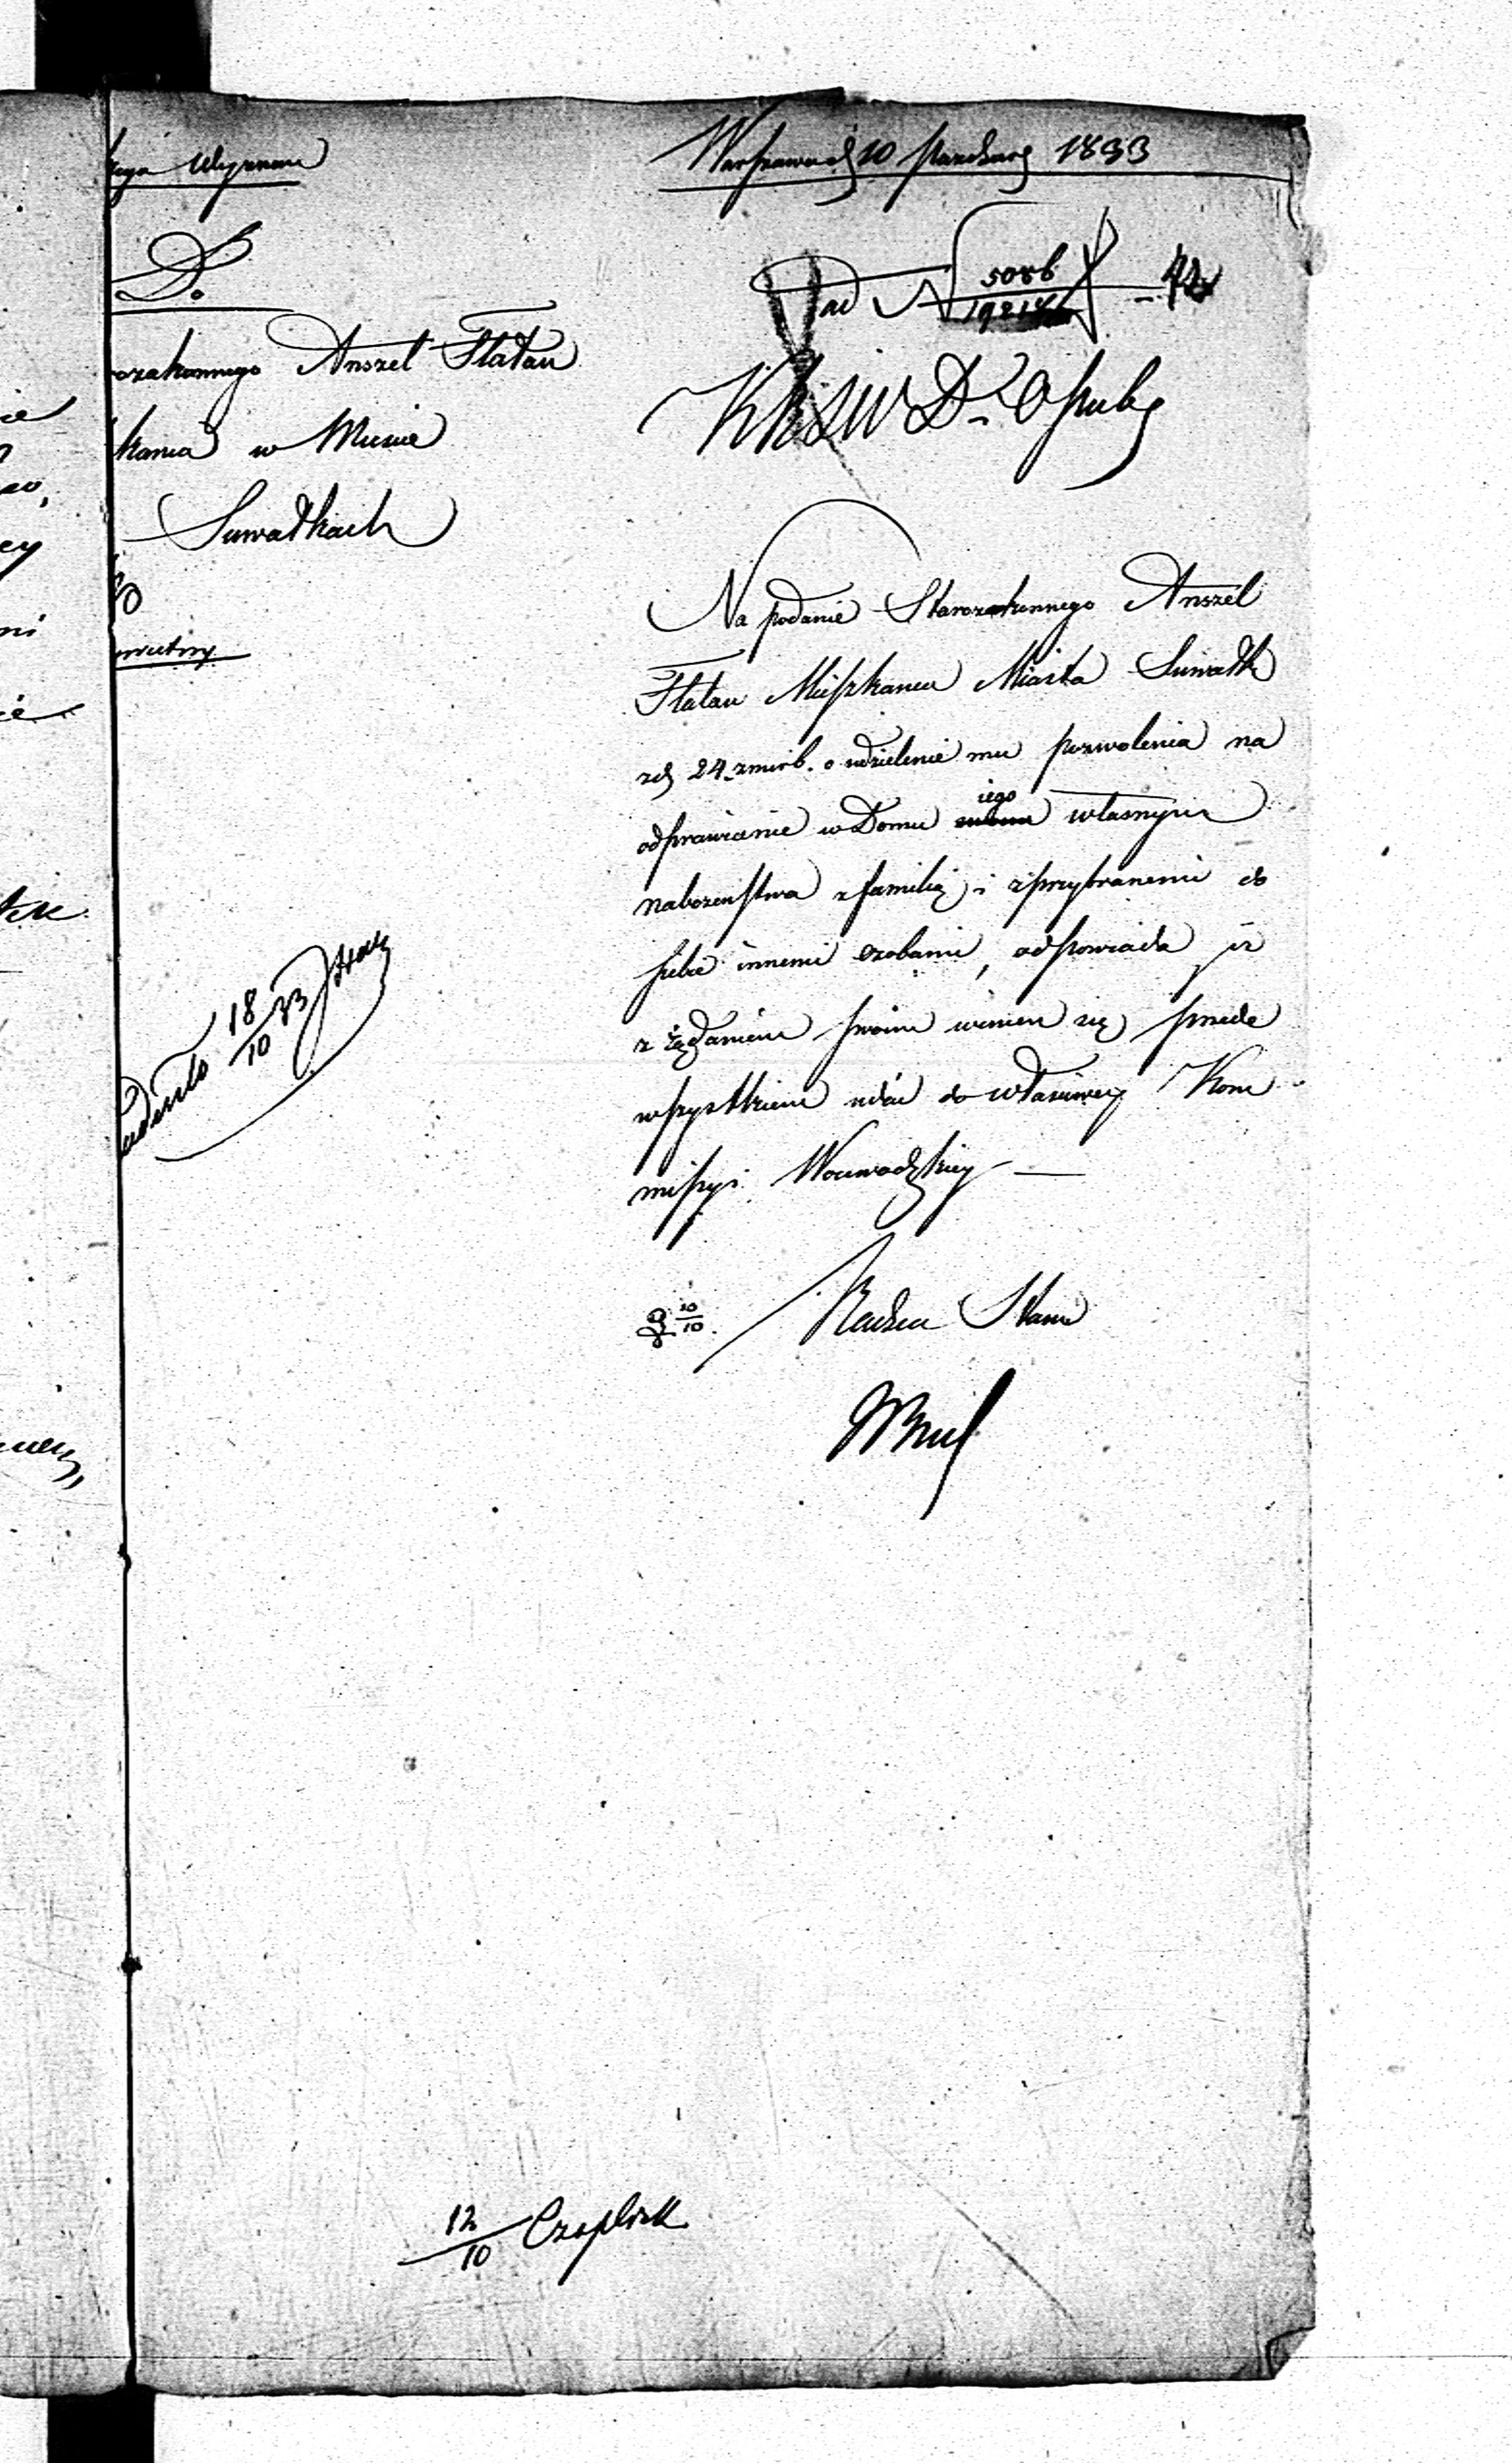 Wyznan
Do
Anszel Flatau
w Miescie
Suwałkach
18/10 33
Warszawa d. 10 Pazdzier. 1833
ad N 5086
KRSWD i Op. Publ.
Na podanie Starozakonnego Anszel
Flatau Mieszkanca Miasta Suwałk
z d. 24. z. m. i rb. o udzielenie mu pozwolenia na
odprawianie w Domu iego własnym
nabozenstwa z familią i z przybranemi do
siebie innemi osobami, odpowiada iż
z żądaniem swoim winien się przede
wszystkiem udać do właściwey Kom
missyi Woiewodzkiey —
10/10
Radca Stanu
12/10